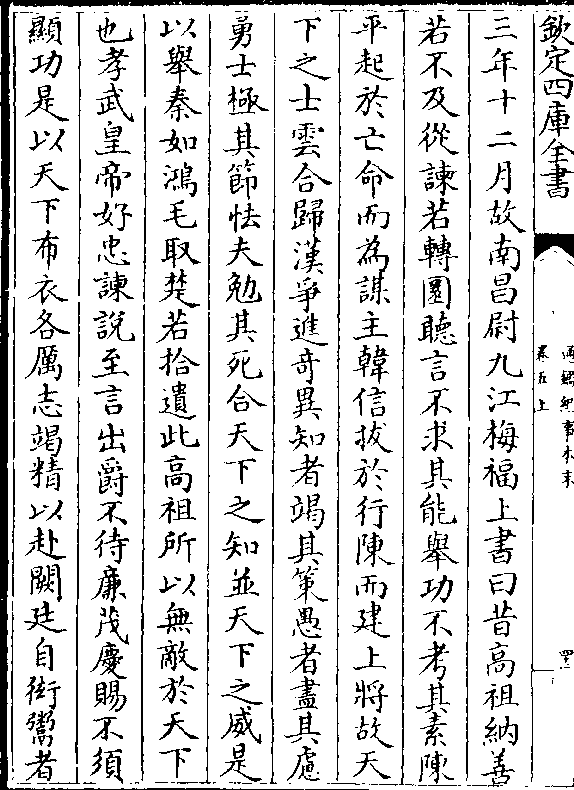 欽定四庫全書
通鑑紀事本末
卷五上
三年十二月故南昌尉九江梅福上書曰昔高祖納善
若不及從諫若轉圜聽言不求其能舉功不考其素陳
平起於亡命而為謀主韓信拔於行陳而建上將故天
下之士雲合歸漢爭進奇異知者竭其策愚者盡其慮
勇士極其節怯夫勉其死合天下之知並天下之威是
以舉秦如鴻毛取楚若拾遺此高祖所以無敵於天下
也孝武皇帝好忠諫說至言出爵不待廉茂慶賜不須
顯功是以天下布衣各厲志竭精以赴闕廷自衒鬻者